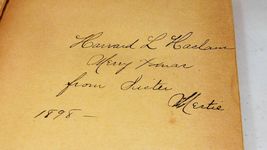 Harvard L Haslam
Merry Xmas
from Sister
Mertie
1898 –